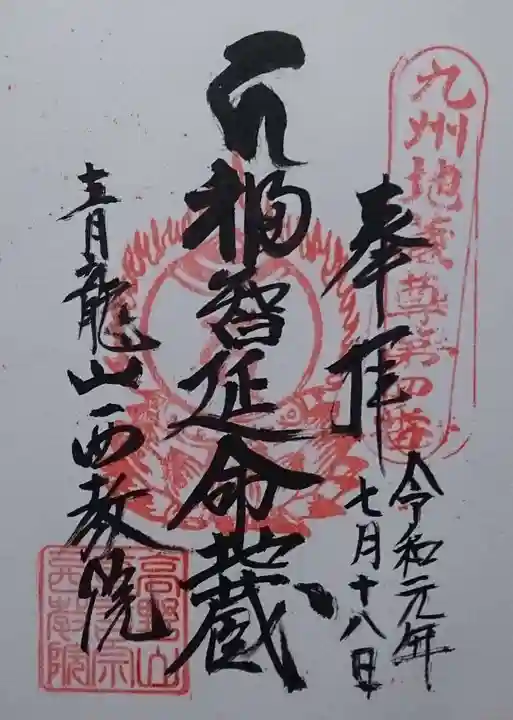 九州地蔵尊第四番
奉拝
令和元年
七月十八日
福智延命地蔵
青龍山西教院
高野山
宗
西教院